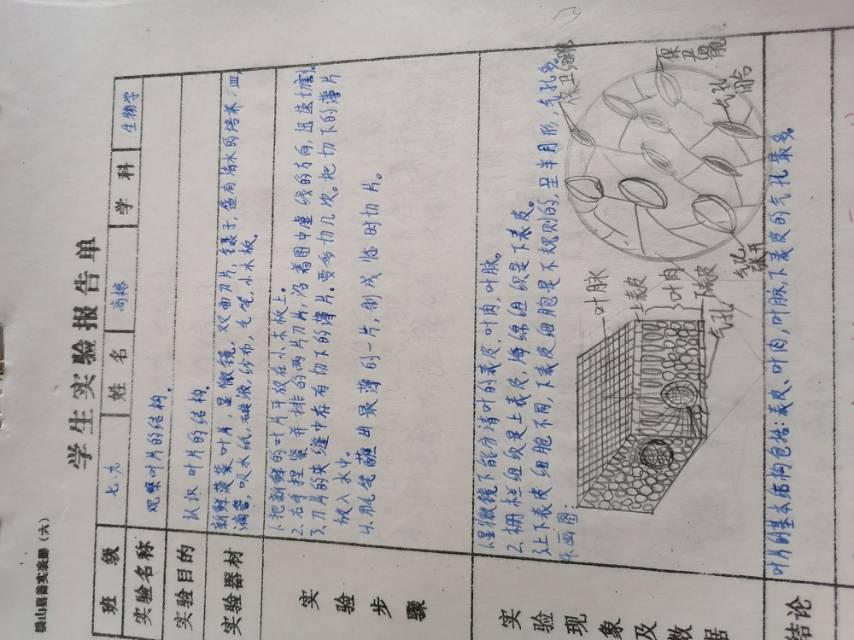 微山县番实表册（六）
学生实验报告单
班 级 七.九 姓 名 学 科 生物学
实验名称 观察叶片的结构。
实验目的 认识叶片的结构。
实验器材 新鲜菠菜叶片，显微镜，双面刀片，镊子，盛有清水的培养皿，
滴管，吸水纸，碘液，纱布，毛笔，小木板。
实验步骤
1.把新鲜的叶片平放在小木板上。
2.右手捏紧并排的两片刀片，沿着图中虚线的方向，迅速切割。
3.刀片的夹缝中存有切下的薄片。要多切几次。把切下的薄片
放入水中。
4.用毛笔蘸出最薄的一片，制成临时切片。
实验现象及数据
1.显微镜下能分清叶的表皮，叶肉，叶脉。
2.栅栏组织是上表皮，海绵组织是下表皮。
3.上下表皮细胞不同，下表皮细胞是不规则的，且半月形，气孔多。
作画图：
叶脉
上表皮
叶肉
下表皮
气孔
保卫细胞
保卫细胞
气孔闭合
气孔张开
结论 叶片的基本结构包括：表皮、叶肉，叶脉，下表皮的气孔最多。